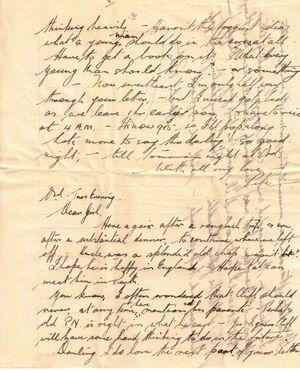 thinking heavily - Haven't the foggiest idea
what a young man should do in the
Have to get a book on it. "What every
young man should know" - or something
- Now sweetheart I'm only half way
through your letter - but I must to bed
as we leave the
at 4 A.M. - so I'll pop along
Lots more to say tho darling - so good
night, - till tomorrow night at
With all my love,
Tues Evening.
Dear Girl,
Here again after a roughish trip, & on
after a substantial dinner, to continue where we left
off. Uncle was a splendid old chap wasn't he?
I hope he is happy in England & Hope that I can
meet him in
You know, I often wondered that Cliff should
never, at any time, have mentioned his parents - Perhaps
old P.N. is right in what he says - So I guess Cliff
will have some hard thinking to do in the future
Darling, I do love the next part of your letter